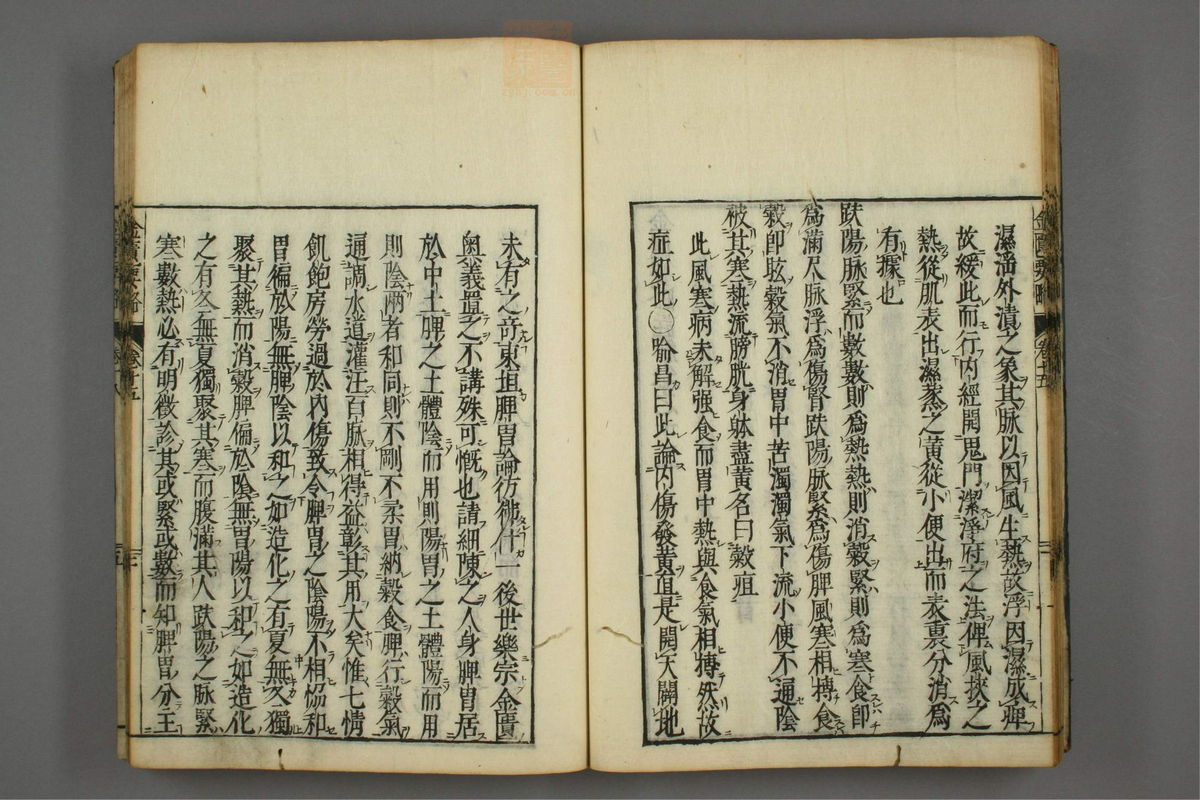 濕淫外漬之象其脉以因風生熱故浮因濕成痺
故緩此而行内經開鬼門潔淨府之法俾風挾之
熱從肌表出濕蒸之黄從小便出而表裏分消爲
有據也
趺陽脉緊而數數則爲熱熱則消穀緊則爲寒食即
爲滿尺脉浮爲傷腎趺陽脉緊爲傷脾風寒相搏食
穀即眩穀氣不消胃中苦濁濁氣下流小便不通陰
被其寒熱流膀胱身躰盡黄名曰穀疸
此風寒病未解强食而胃中熱與食氣相搏然故
症如此○喻昌曰此論内傷發黄直是開天闢地
未有之竒東垣脾胃論彷彿什一後世樂宗金匱
奥義置之不講殊可慨也請細陳之人身脾胃居
於中土脾之土體陰而用則陽胃之土體陽而用
則陰兩者和同則不剛不柔胃納穀食脾行穀氣
通調水道灌汪百脉相得益彰其用大矣惟七情
飢飽房勞過於内傷致令脾胃之陰陽不相協和
胃偏於陽無脾陰以和之如造化之有夏無冬獨
聚其熱而消穀脾偏於陰無胃陽以和之如造化
之有冬無夏獨聚其寒而腹滿其人趺陽之脉緊
寒數熱必有明徵診其或緊或數而知脾胃分主
金匱要略
卷十五